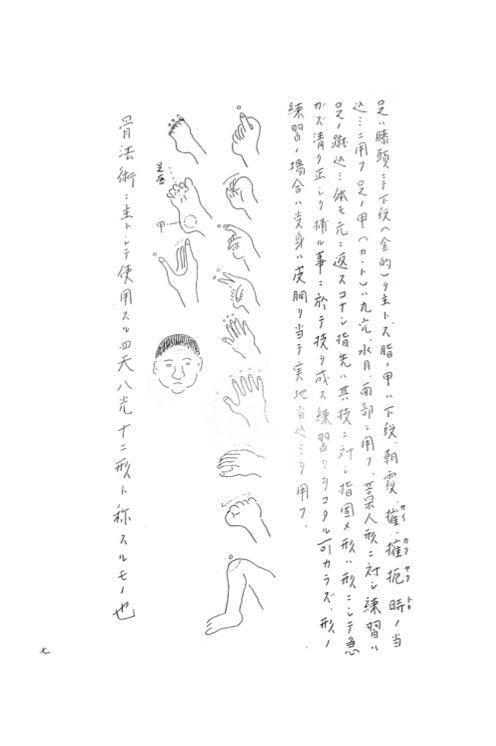 足ハ膝頭ニテ下段(金的)ヲ主トズ、脂ノ甲ハ下段、朝霞、摧、擁扼時ノ当
カイ カフ ヤク トキ
込ミニ用フ足ノ甲(カカト)ハ九穴、水月、面部ニ用フ、藁人形ニ対シ練習ハ
足ノ蹴込ミ体モ元ニ返スコナシ指先ハ其技ニ対シ指固メ形ハ形ニシテ急
ガズ清ク正シク捕ル事ニ於テ技ヲ成ス練習ヲヲコタル可カラズ、形ノ
練習ノ場合ハ党身ハ皮胴ヲ当テ実地当込ミヲ用フ、
足底
甲
骨法術ニ主トシテ使用スル四天八光十二形ト称スルモノ也